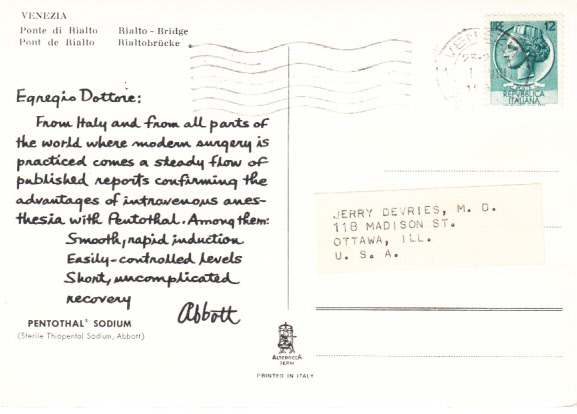 VENEZIA
Ponte di Rialto Rialto - Bridge
Pont de Rialto Rialtobrücke
LIRE 12
REPVBBLICA
ITALIANA
Egregio Dottore:
From Italy and from all parts of
the world where modern surgery is
practiced comes a steady flow of
published reports confirming the
advantages of intravenous anes-
thesia with Pentothal. Among them:
Smooth, rapid induction
Easily-controlled levels
Short, uncomplicated
recovery
Abbott
PENTOTHAL® SODIUM
(Sterile Thiopental Sodium, Abbott)
JERRY DEVRIES, M. D.
118 MADISON ST.
OTTAWA, ILL.
U. S. A.
ALTEROCCA
TERNI
PRINTED IN ITALY